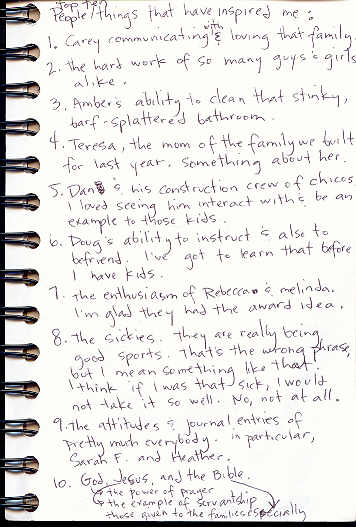 Top Ten
People/things that have inspired me:
1. Carey communicating with & loving that family.
2. the hard work of so many guys & girls
alike.
3. Amber's ability to clean that stinky,
barf-splattered bathroom.
4. Teresa, the mom of the family we built
for last year. Something about her.
5. Dan & his construction crew of chicos
I loved seeing him interact with & be an
example to those kids.
6. Doug's ability to instruct & also to
befriend. I've got to learn that before
I have kids.
7. the enthusiasm of Rebecca & melinda.
I'm glad they had the award idea.
8. the sickies. they are really being
good sports. that's the wrong phrase,
but I mean something like that.
I think if I was that sick, I would
not take it so well. No, not at all.
9. the attitudes & journal entries of
pretty much everybody. in particular,
Sarah F. and Heather.
10. God, Jesus, and the Bible.
the power of prayer
the example of servantship
those given to the families especially